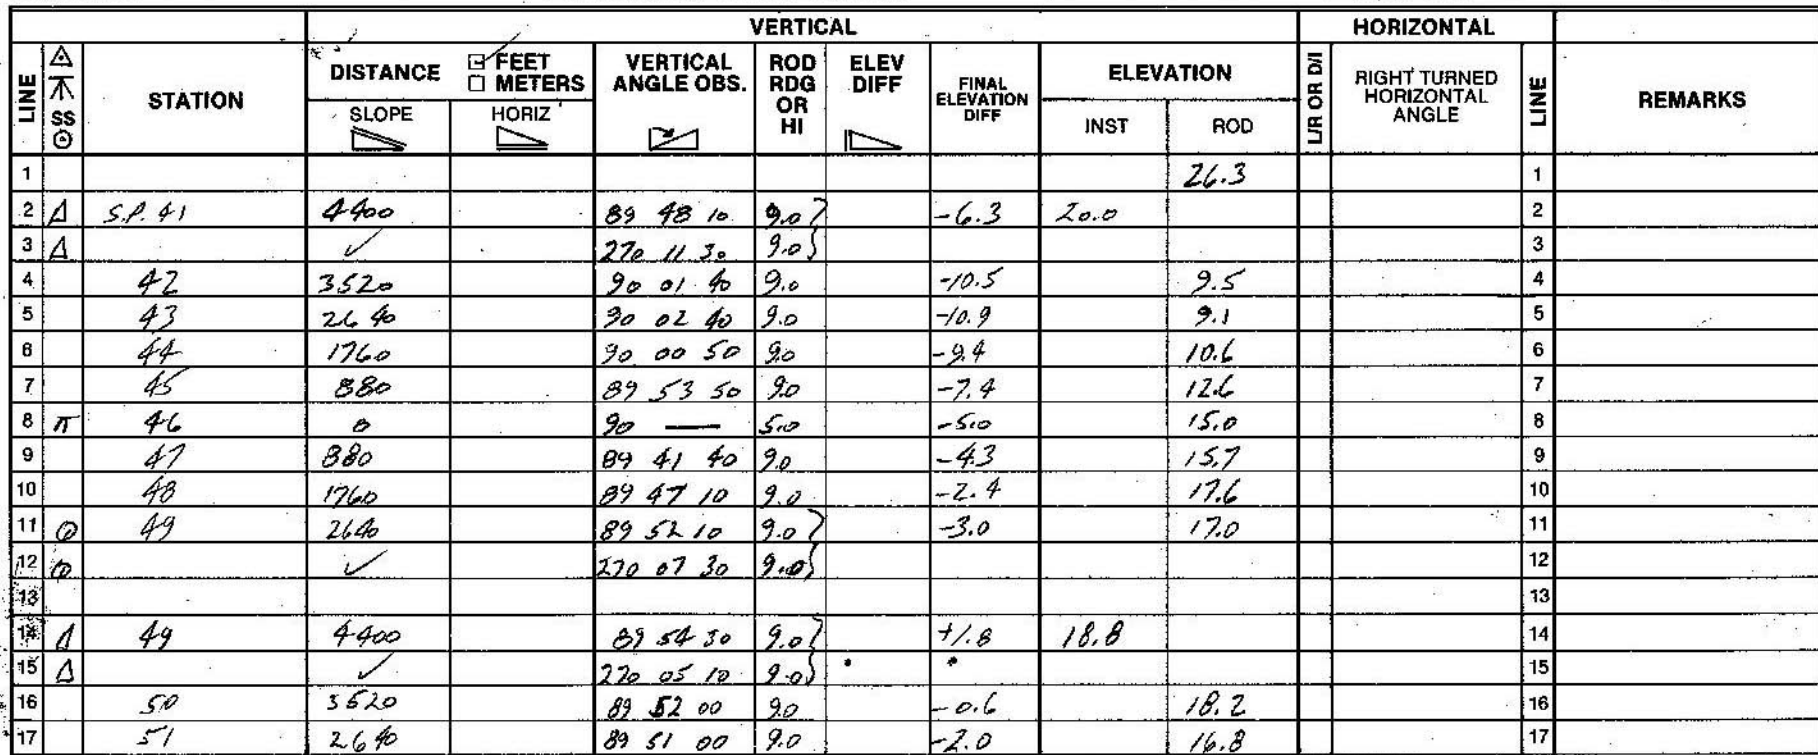 VERTICAL HORIZONTAL
LINE SS STATION DISTANCE FEET METERS SLOPE HORIZ VERTICAL ANGLE OBS. ROD RDG OR HI ELEV DIFF FINAL ELEVATION DIFF ELEVATION INST ROD L/R OR D/I RIGHT TURNED HORIZONTAL ANGLE LINE REMARKS
1 26.3 1
2 Δ S.P. 41 4400 89 48 10 9.0 -6.3 20.0 2
3 Δ ✓ 270 11 30 9.0 3
4 42 3520 90 01 40 9.0 -10.5 9.5 4
5 43 2640 90 02 40 9.0 -10.9 9.1 5
6 44 1760 90 00 50 9.0 -9.4 10.6 6
7 45 880 89 53 50 9.0 -7.4 12.6 7
8 π 46 0 90 — 5.0 -5.0 15.0 8
9 47 880 89 41 40 9.0 -4.3 15.7 9
10 48 1760 89 47 10 9.0 -2.4 17.6 10
11 ⊙ 49 2640 89 52 10 9.0 -3.0 17.0 11
12 ⊙ ✓ 270 07 30 9.0 12
13 13
14 Δ 49 4400 89 54 30 9.0 +1.8 18.8 14
15 Δ ✓ 270 05 10 9.0 15
16 50 3520 89 52 00 9.0 -0.6 18.2 16
17 51 2640 89 51 00 9.0 -2.0 16.8 17